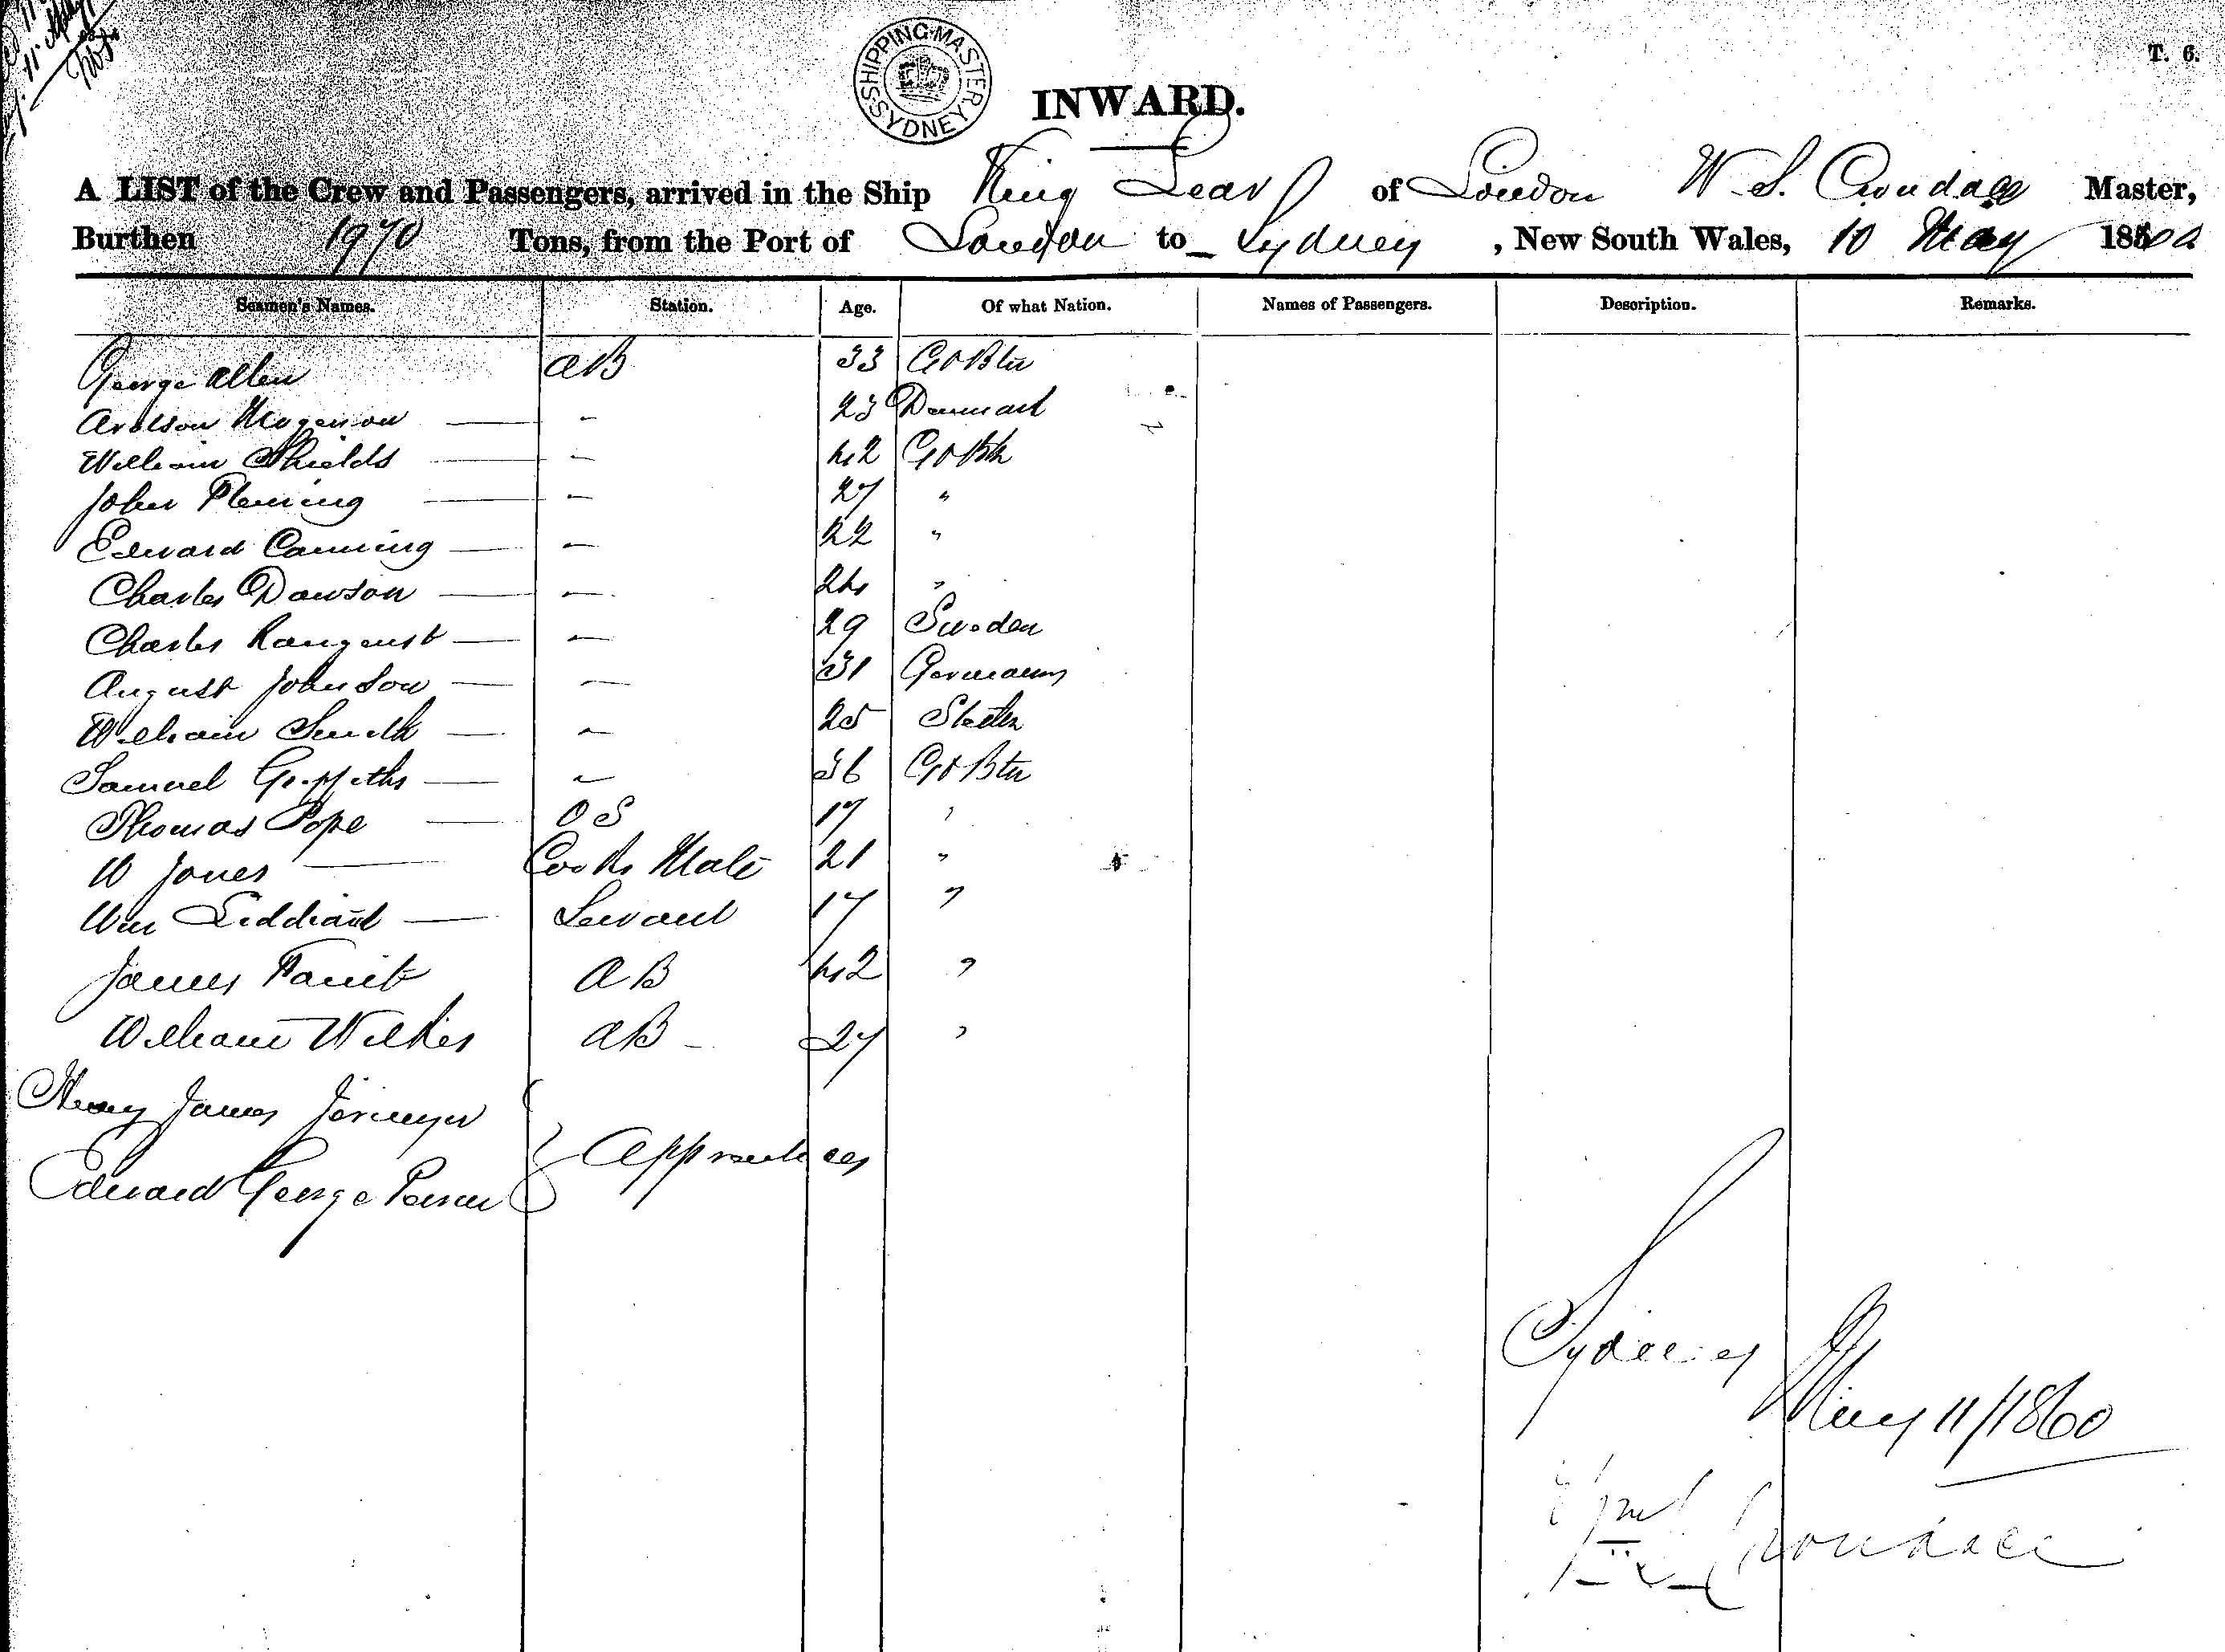 11
SHIPPING MASTER. SYDNEY.
T. 6.
INWARD.
A LIST of the Crew and Passengers, arrived in the Ship King Lear of London W. S. Crondace Master,
Burthen 1970 Tons, from the Port of London to Sydney , New South Wales, 10 May 1860
Seamen's Names. Station. Age. Of what Nation. Names of Passengers. Description. Remarks.
George Allen AB 33 Gt Btn
Mogenson — - 23 Denmark
William Shields — - 42 Gt Btn
John Fleming — - 27 "
Edward Canning — - 22 "
Charles Dawson — - 24 "
Charles — - 29 Sweden
August Johnson — - 31 Germany
William Smith — - 25
Samuel Griffiths — - 36 Gt Btn
Thomas Pope — OS 17 "
W Jones — Cooks Mate 21 "
Wm Liddiard — Servant 17 "
James AB 42 "
William Wilkes AB - 27 "
Henry James
Apprentices
Edward George
Sydney
May 11/1860
Crondace